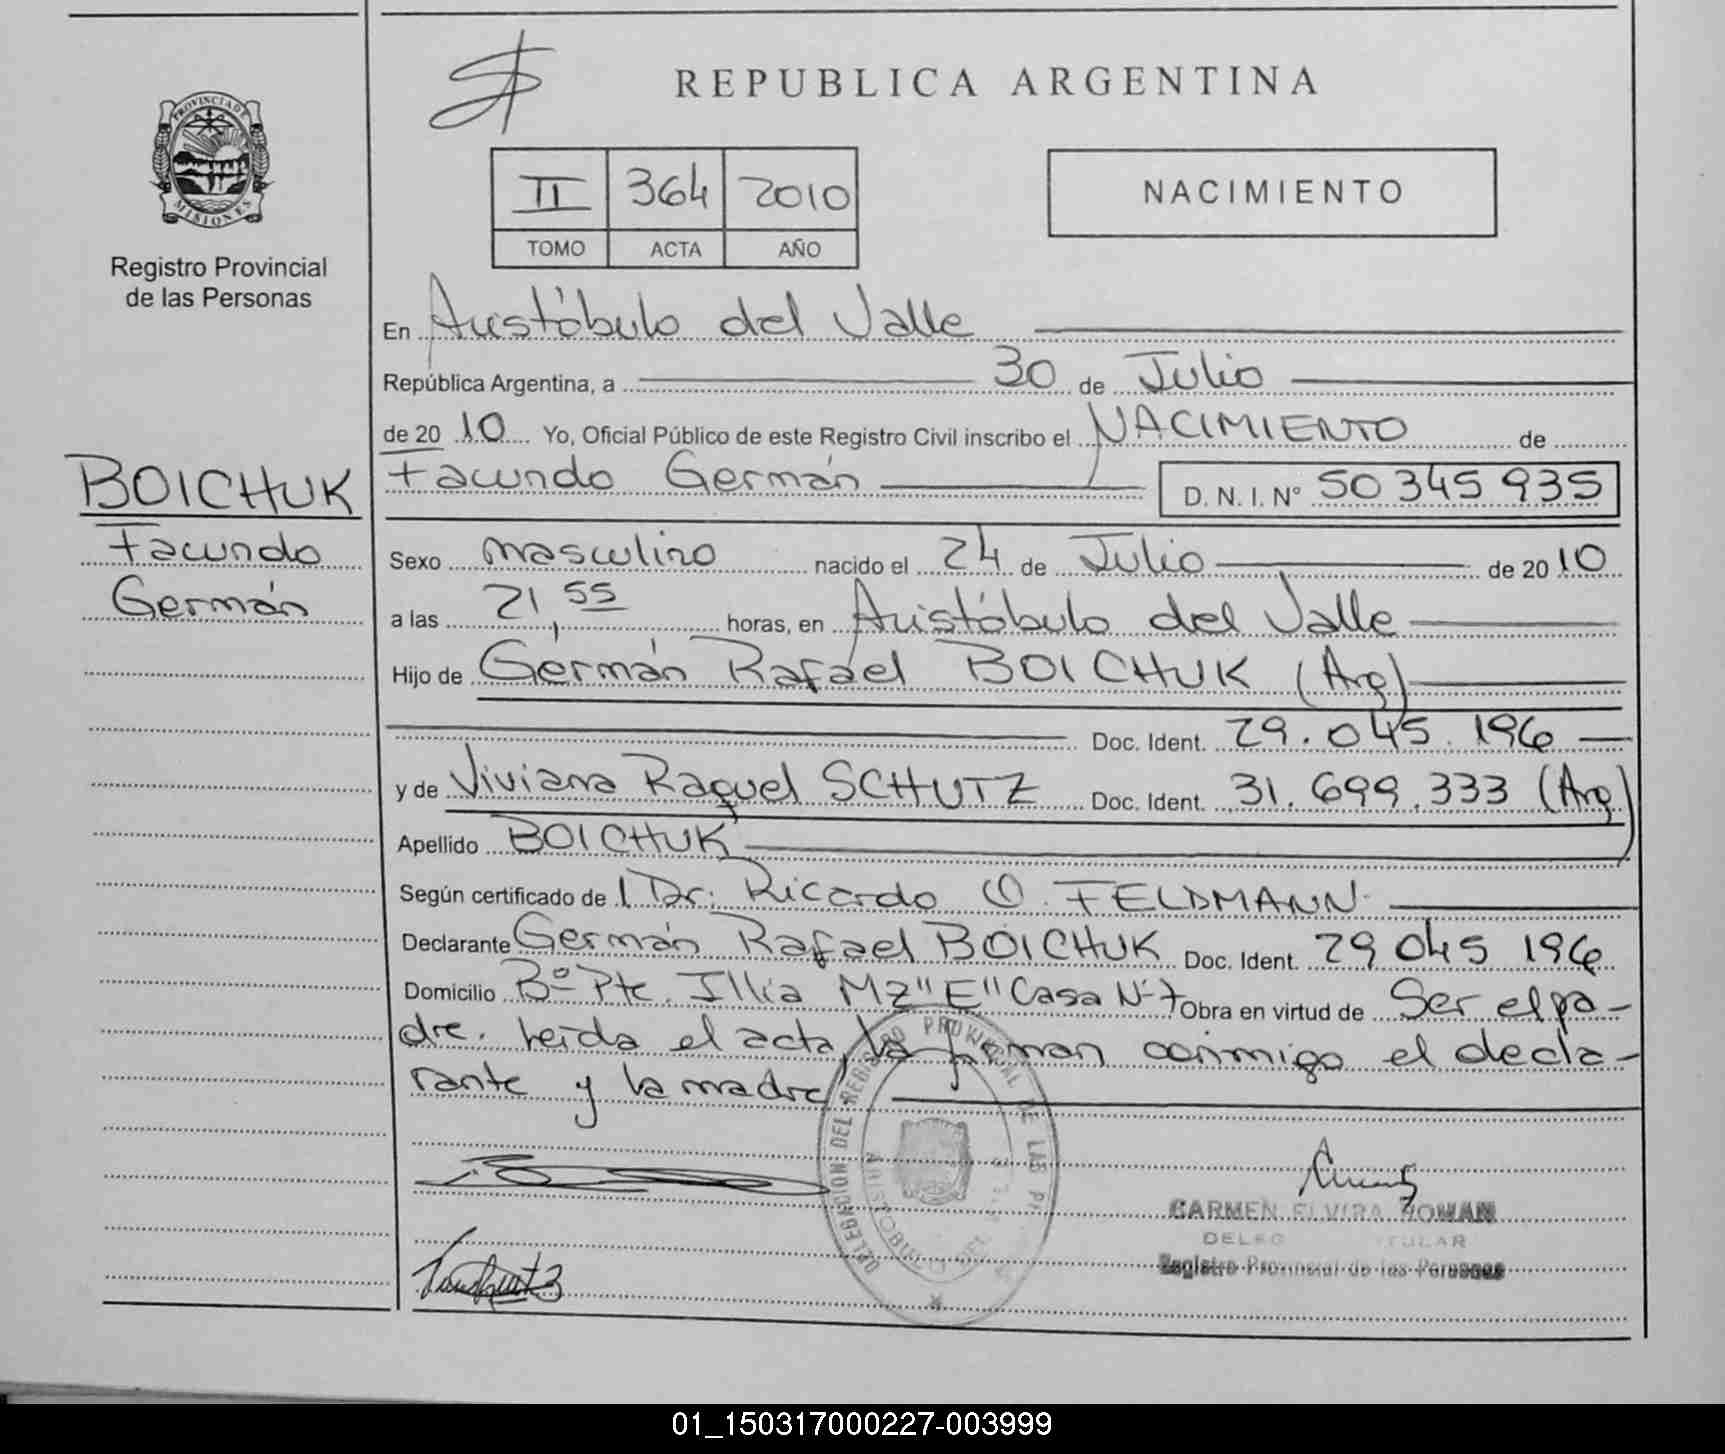 REPUBLICA ARGENTINA
PROVINCIA DE
MISIONES
Registro Provincial
de las Personas
II 364 2010
TOMO ACTA AÑO
NACIMIENTO
En Aristóbulo del Valle
República Argentina, a 30 de Julio
de 20 10 Yo, Oficial Público de este Registro Civil inscribo el NACIMIENTO de
BOICHUK
Facundo
Germán
Facundo Germán D. N. I. N° 50 345 935
Sexo masculino nacido el 24 de Julio de 20 10
a las 21,55 horas, en Aristóbulo del Valle
Hijo de Germán Rafael BOICHUK (Arg)
Doc. Ident. 29.045.196
y de Viviana Raquel SCHUTZ Doc. Ident. 31.699.333 (Arg)
Apellido BOICHUK
Según certificado de l Dr. Ricardo O. FELDMANN
Declarante Germán Rafael BOICHUK Doc. Ident. 29 045 196
Domicilio Bº Pte. Illia Mz "E" Casa Nº 7 Obra en virtud de Ser el pa-
dre. Leída el acta, la firman conmigo el decla-
rante y la madre
DELEGACION DEL REGISTRO PROVINCIAL DE LAS
ARISTOBULO DEL
CARMEN ELVIRA ROMAN
TITULAR
Registro Provincial de las Personas
01_150317000227-003999